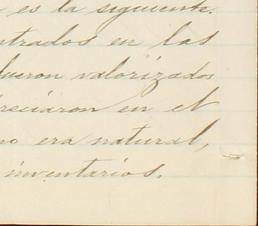 es la siguiente.
ntrados en las
fueron valorizados
reciaron en el
no era natural,
inventarios.